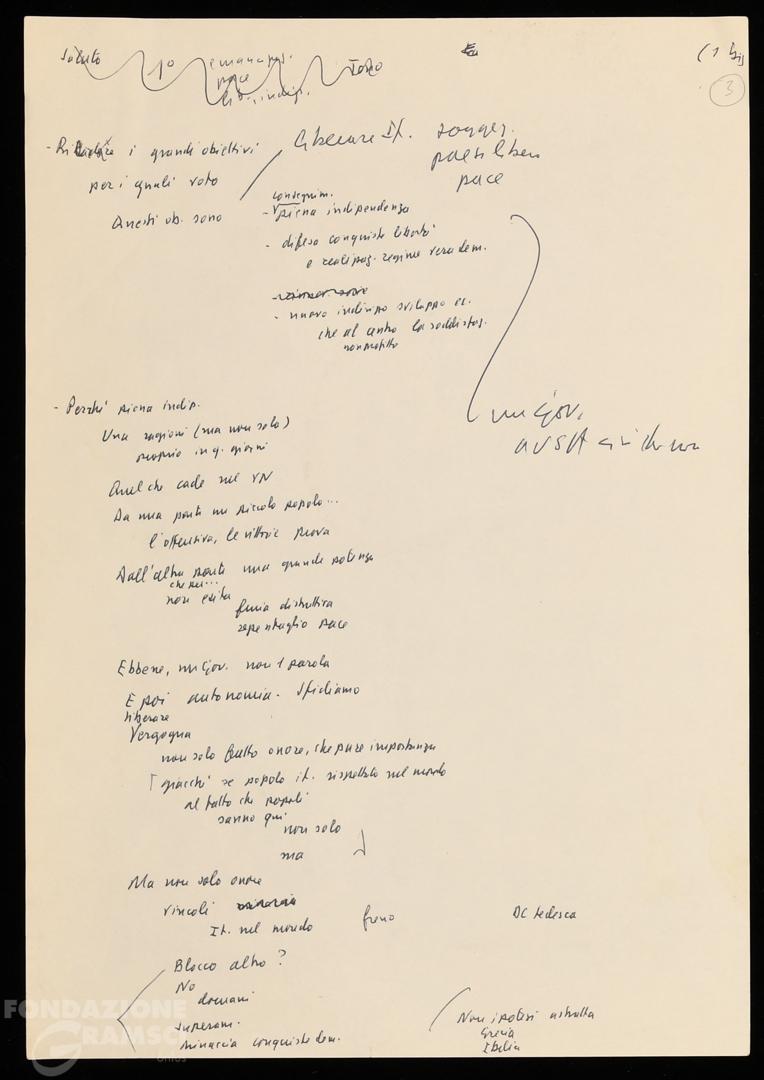 Saluto 1° emancipaz. Torino
pace
(1 bis
3
- i grandi obiettivi
per i quali voto
Questi ob. sono
liberare It. sogges.
paesi liberi
pace
conseguim.
- piena indipendenza
- difesa conquiste libertà
e realizzaz. regime vera dem.
- nuovo indirizzo sviluppo ec.
che al centro la soddisfaz.
non profitto
un Gov.
- Perché piena indip.
Una ragione (ma non sola)
proprio in q. giorni
Quel che cade nel VN
Da una parte un piccolo popolo...
l'offensiva, le vittorie prova
Dall'altra parte una grande potenza
che per...
non esita
furia distruttiva
repentaglio pace
Ebbene, un Gov. non 1 parola
E poi autonomia. Sfidiamo
liberare
Vergogna
non solo fatto onore, che pure importanza
giacché se popolo it. rispettato nel mondo
al fatto che popoli
sanno qui
non solo
ma
Ma non solo onore
vincoli
It. nel mondo freno DC tedesca
Blocco altro?
No
domani
superam.
minaccia conquiste dem.
Non ipotesi astratta
Grecia
Italia
FONDAZIONE
GRAMSCI
ONLUS